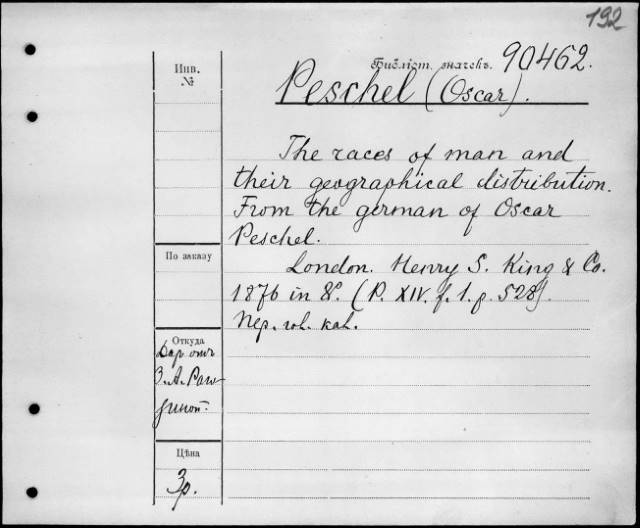 192
Инв.
№
Библіот. значекъ. 90462.
Peschel (Oscar).
The races of man and
their geographical distribution.
From the german of Oscar
Peschel.
London. Henry S. King & Co.
1876 in 8°. (P. XIV. f. 1. p. 528).
По заказу
Откуда
Даръ отъ
Цѣна
3р.